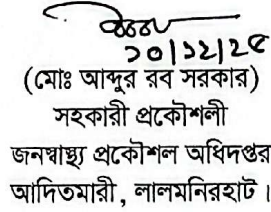 ১০/১২/২৫
(মোঃ আব্দুর রব সরকার)
সহকারী প্রকৌশলী
জনস্বাস্থ্য প্রকৌশল অধিদপ্তর
আদিতমারী, লালমনিরহাট।